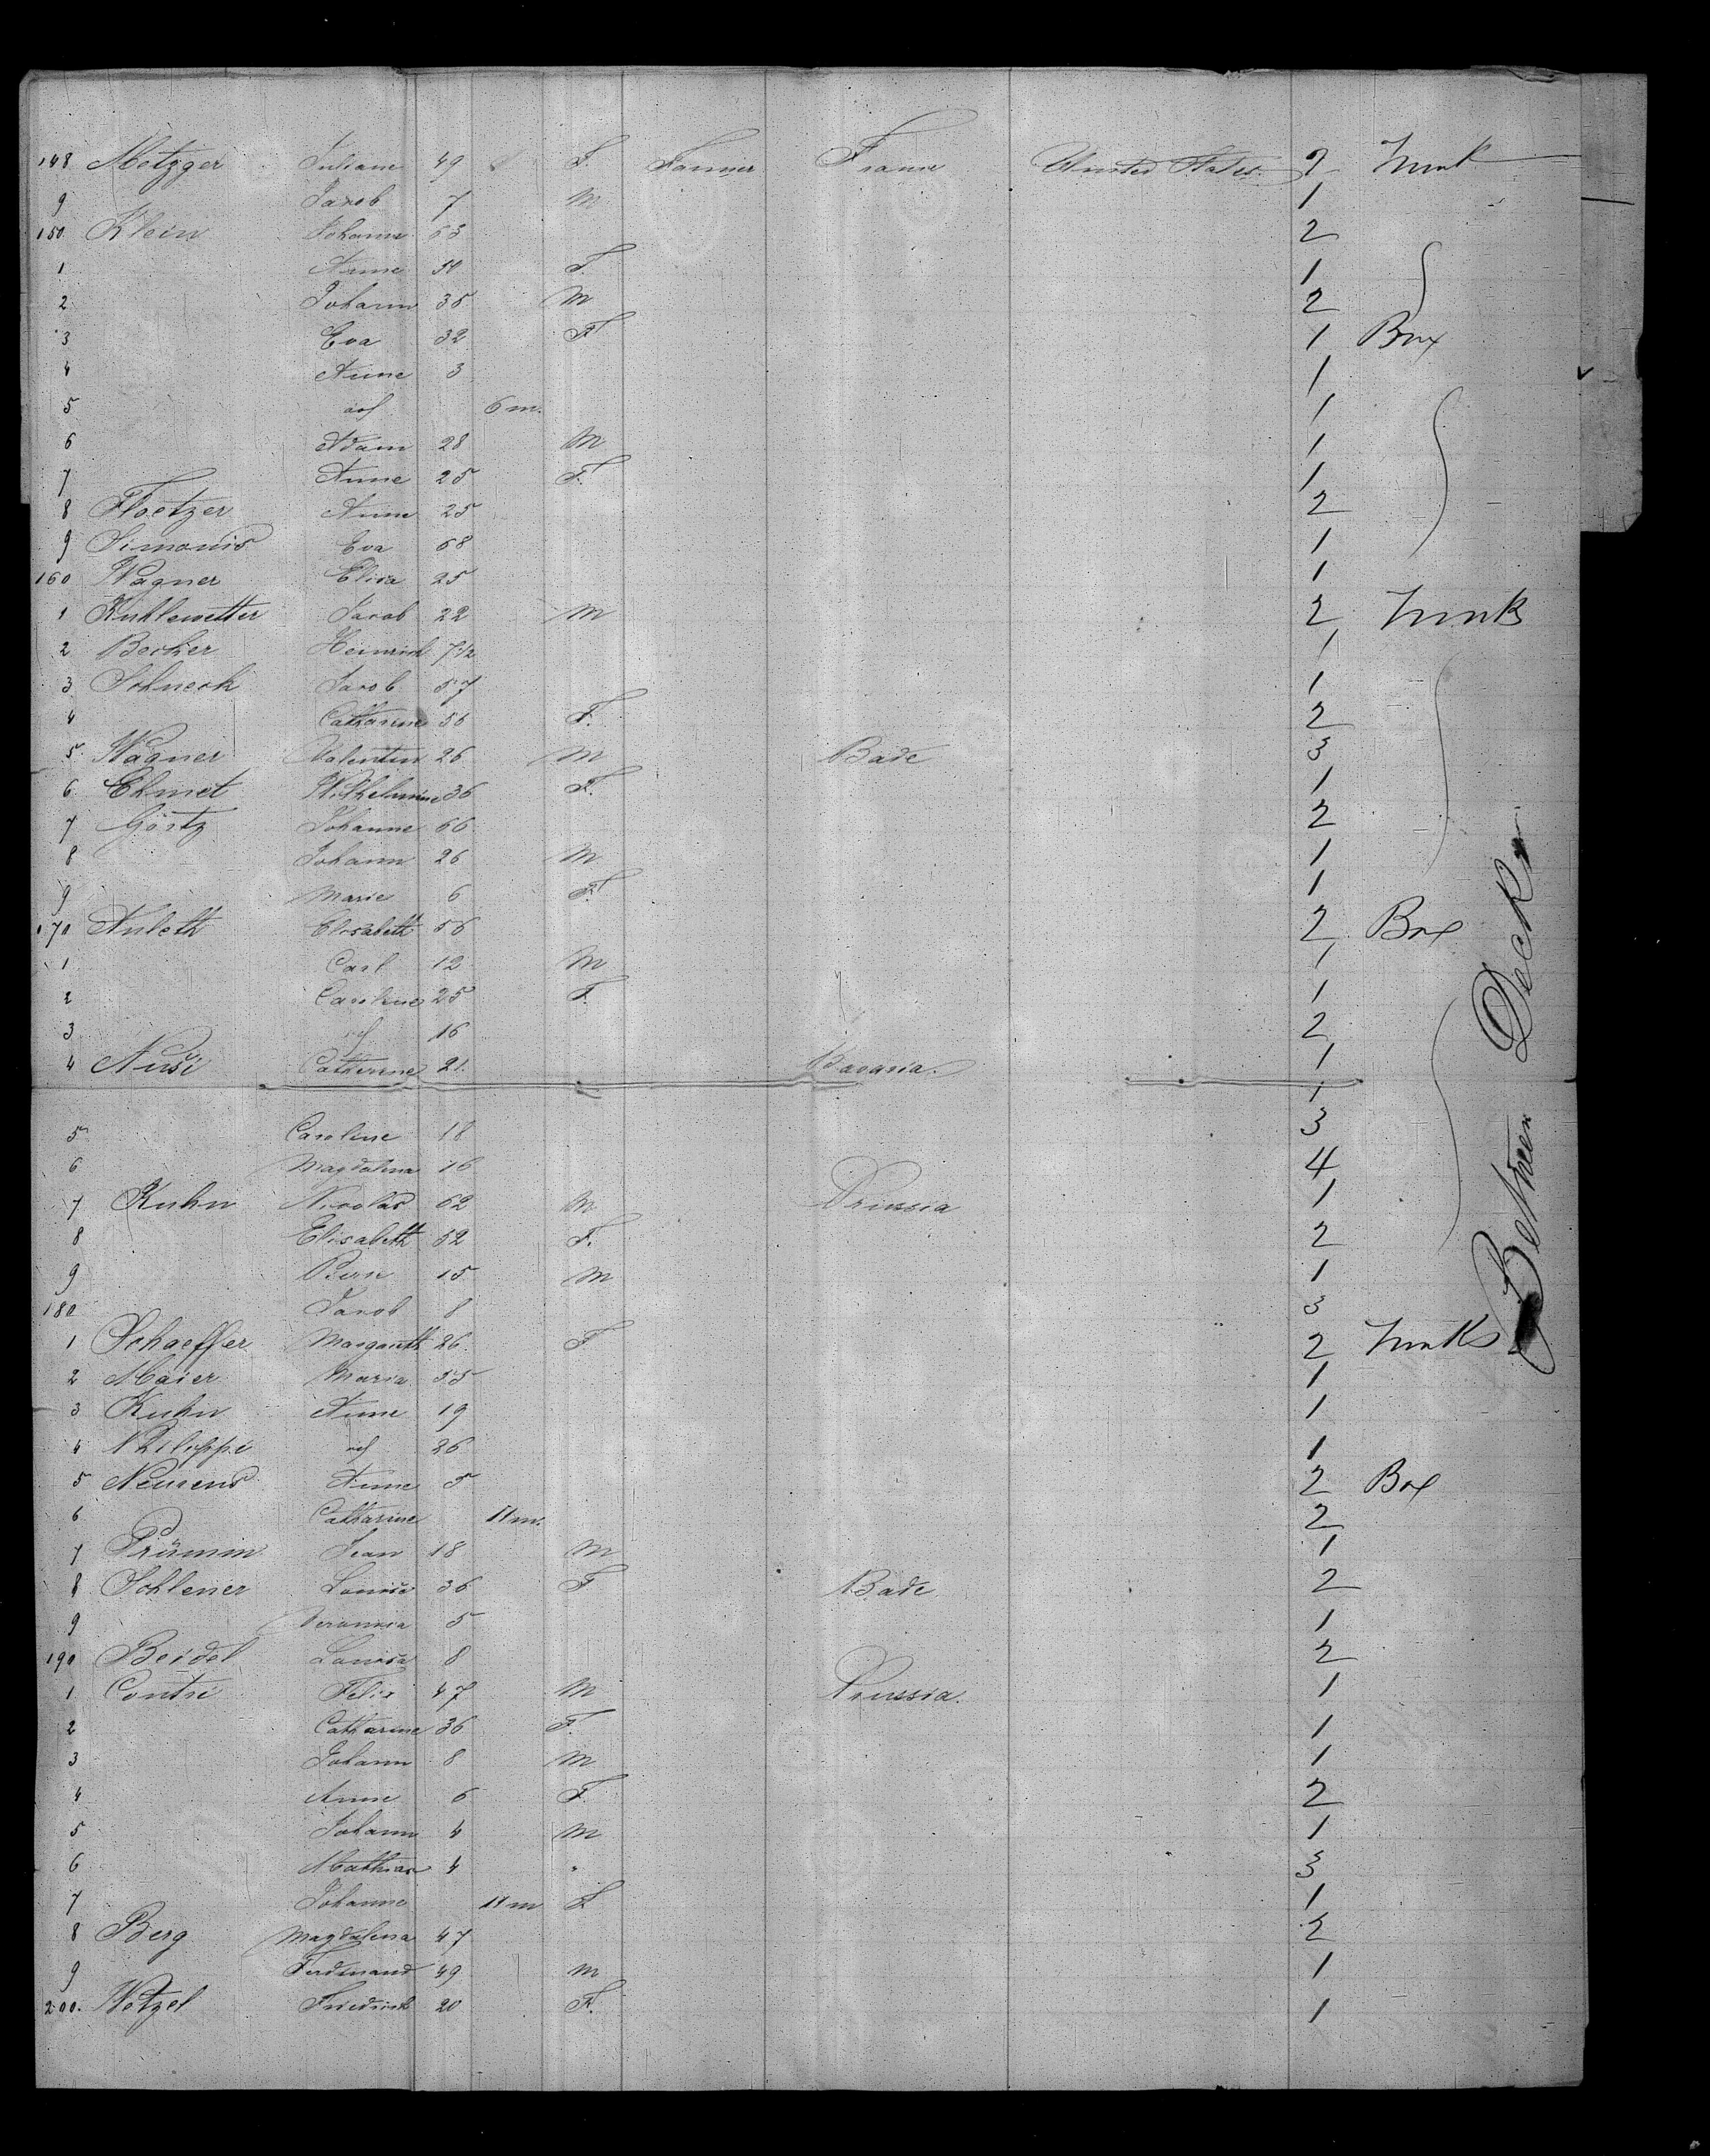 148 Metzger Juliane 49 F. Farmer France United States 2 Trunk
9 Jacob 7 M 1
150 Klein Johann 63 2
1 Anne 54 F. 1
2 Johann 35 M 2
3 Eva 32 F 1 Box
4 Anne 3 1
5 6 m. 1
6 Adam 28 M 1
7 Anne 25 F. 1
8 Floetzer Anne 25 2
9 Simonis Eva 68 1
160 Wagner Elisa 25 1
1 Kuhlewetter Jacob 22 M 2 Trunks
2 Becker Heinrich 7 1/2 1
3 Schneck Jacob 57 1
4 Catharine 56 F. 2
5 Wagner Valentin 26 M Bade 3
6 Ehmet Wilhelmine 36 F. 1
7 Görtz Johanne 66 2
8 Johann 26 M 1
9 Marie 6 F. 1
170 Anleth Elisabeth 56 2 Box
1 Carl 12 M 1
2 Caroline 25 F. 1
3 16 2
4 Catherine 21. Bavaria. 1
1
5 Caroline 18 3
6 Magdalena 16 4
7 Kuhn Nicolas 62 M Prussia 1
8 Elisabeth 52 F. 2
9 15 M 1
180 Jacob 8 3
1 Schaeffer Margareth 26. F 2 Trunks
2 Maier Maria 55 1
3 Kuhn Anne 19 1
4 Philippi 26 1
5 Anne 5 2 Box
6 Catharine 11 m. 2
7 Prümm Jean 18 M 1
8 Schlener Louisa 36 F Bade 2
9 Veronica 5 1
190 Beidel Louisa 8 2
1 Contri Felix 47 M Prussia. 1
2 Catharine 36 F. 1
3 Johann 8 M 1
4 Anne 6 F. 2
5 Johann 4 M 1
6 Mathias 4 " 3
7 Johanne 11 m F 1
8 Berg Magdalena 47 2
9 Ferdinand 49 M 1
200. Wetzel Friedrich 20 F. 1
Between Decks